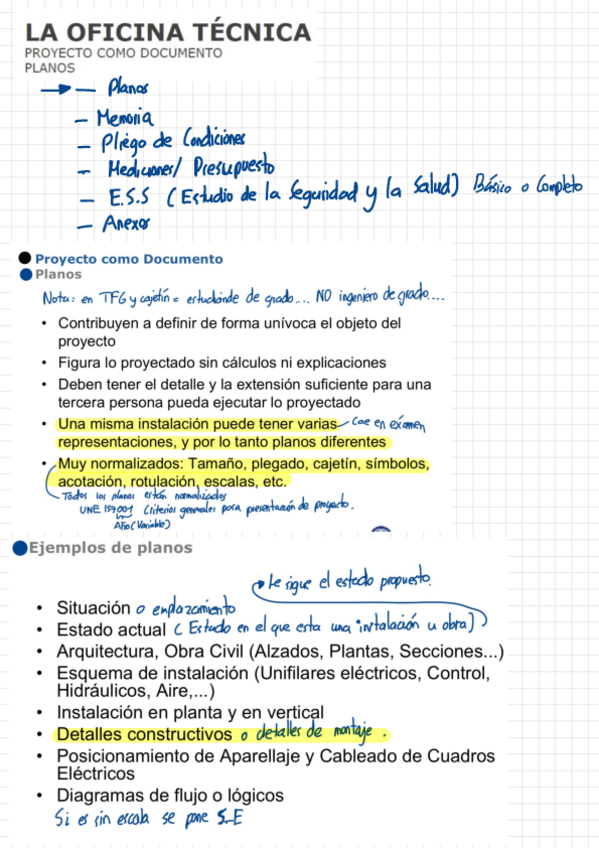 LA OFICINA TÉCNICA
PROYECTO COMO DOCUMENTO
PLANOS
→ – Planos
– Memoria
– Pliego de Condiciones
– Mediciones/ Presupuesto
– E.S.S (Estudio de la Seguridad y la Salud) Básico o Completo
– Anexos
Proyecto como Documento
Planos
Nota: en TFG y cajetín = estudiande de grado... NO ingeniero de grado....
• Contribuyen a definir de forma unívoca el objeto del
proyecto
• Figura lo proyectado sin cálculos ni explicaciones
• Deben tener el detalle y la extensión suficiente para una
tercera persona pueda ejecutar lo proyectado
• Una misma instalación puede tener varias – Cae en exámen
representaciones, y por lo tanto planos diferentes
• Muy normalizados: Tamaño, plegado, cajetín, símbolos,
acotación, rotulación, escalas, etc.
Todos los planos están normalizados
UNE 157001 Criterios generales para presentación de proyecto.
Año (Variable)
Ejemplos de planos
Le sigue el estado propuesto.
• Situación o emplazamiento
• Estado actual (Estado en el que esta una instalación u obra)
• Arquitectura, Obra Civil (Alzados, Plantas, Secciones...)
• Esquema de instalación (Unifilares eléctricos, Control,
Hidráulicos, Aire,...)
• Instalación en planta y en vertical
• Detalles constructivos o detalles de montaje.
• Posicionamiento de Aparellaje y Cableado de Cuadros
Eléctricos
• Diagramas de flujo o lógicos
Si es sin escala se pone S-E